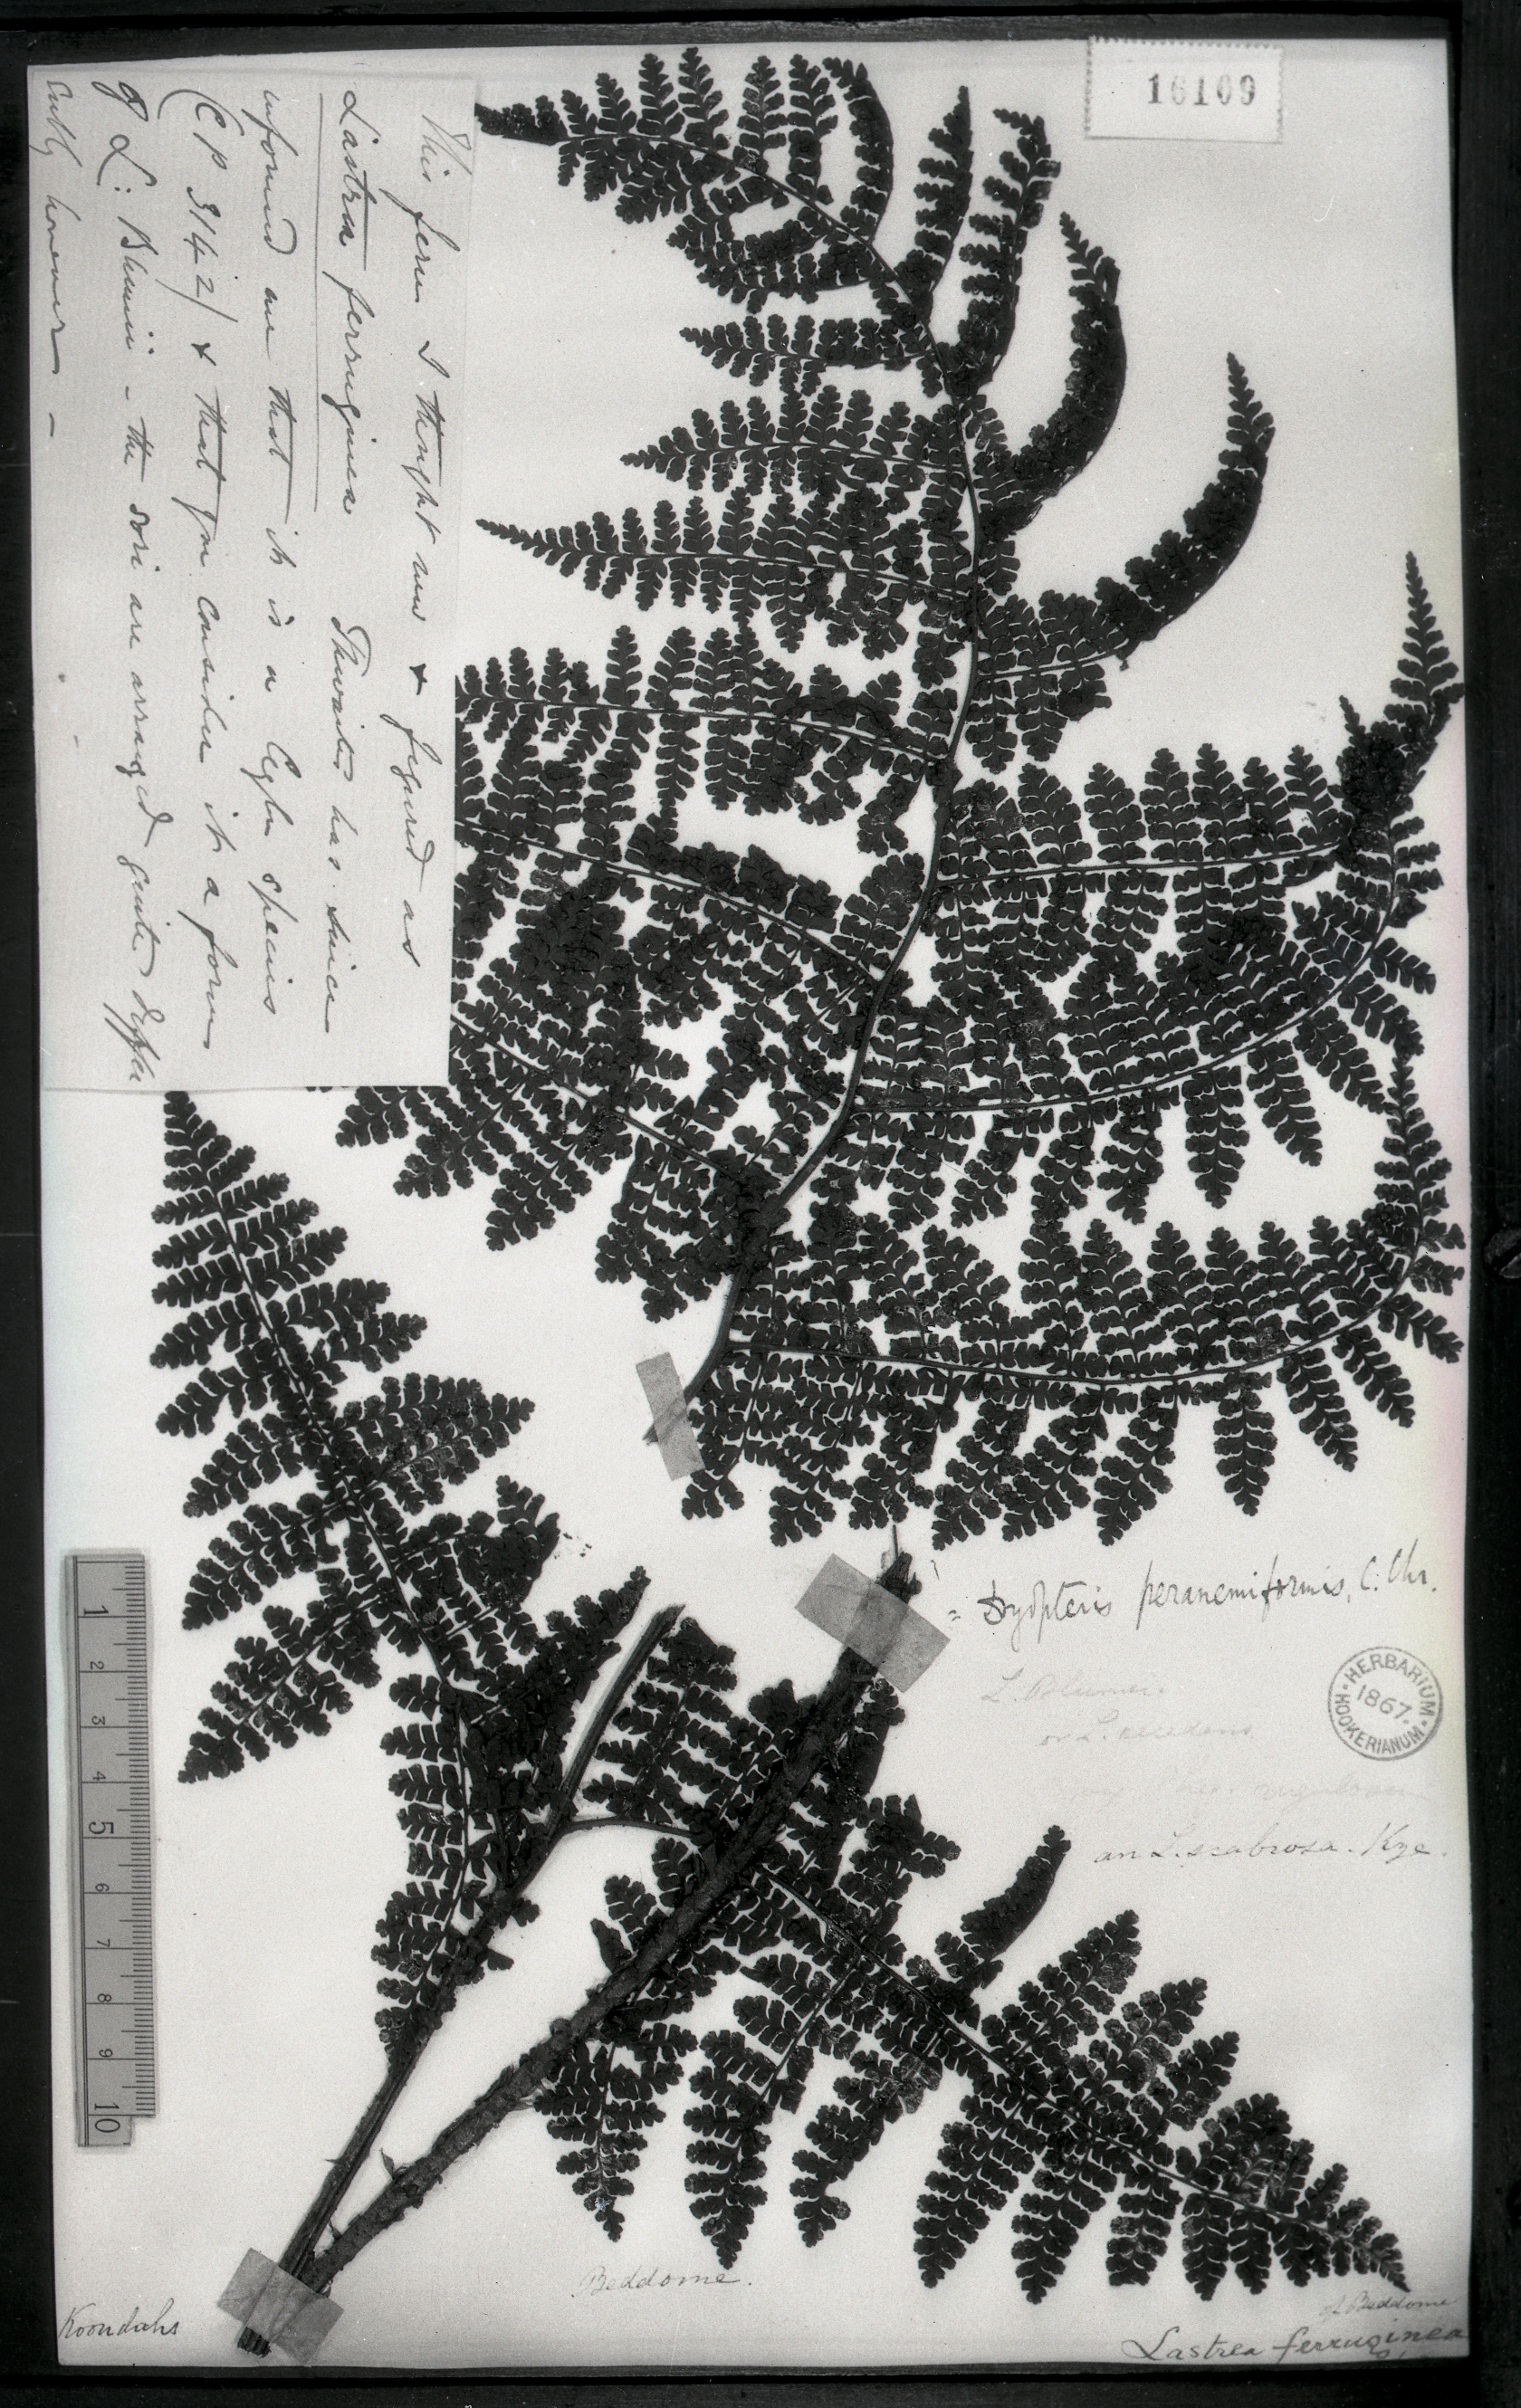 16109
This fern I thought new & figured as
Lastrea ferruginea Thwaites has since
informed me that it is a Ceylon species
(C P 3142) & that you consider it a form
of L: Blumii - the sori are arranged quite differ
ently however -
= Dryopteris peranemiformis, C. Chr.
L. Blumei.
or L.
an L. scabrosa. Kze.
HERBARIUM
1867.
HOOKERIANUM
1 2 3 4 5 6 7 8 9 10
Beddome.
Koondahs
of Beddome
Lastrea ferruginea